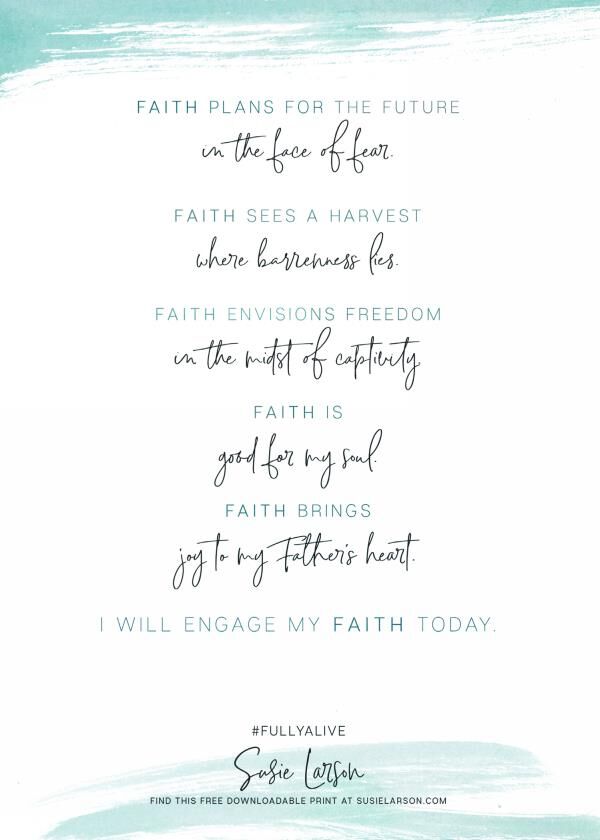 FAITH PLANS FOR THE FUTURE
in the face of fear.
FAITH SEES A HARVEST
where barrenness lies.
FAITH ENVISIONS FREEDOM
in the midst of captivity.
FAITH IS
good for my soul.
FAITH BRINGS
joy to my Father's heart.
I WILL ENGAGE MY FAITH TODAY.
#FULLYALIVE
Susie Larson
FIND THIS FREE DOWNLOADABLE PRINT AT SUSIELARSON.COM